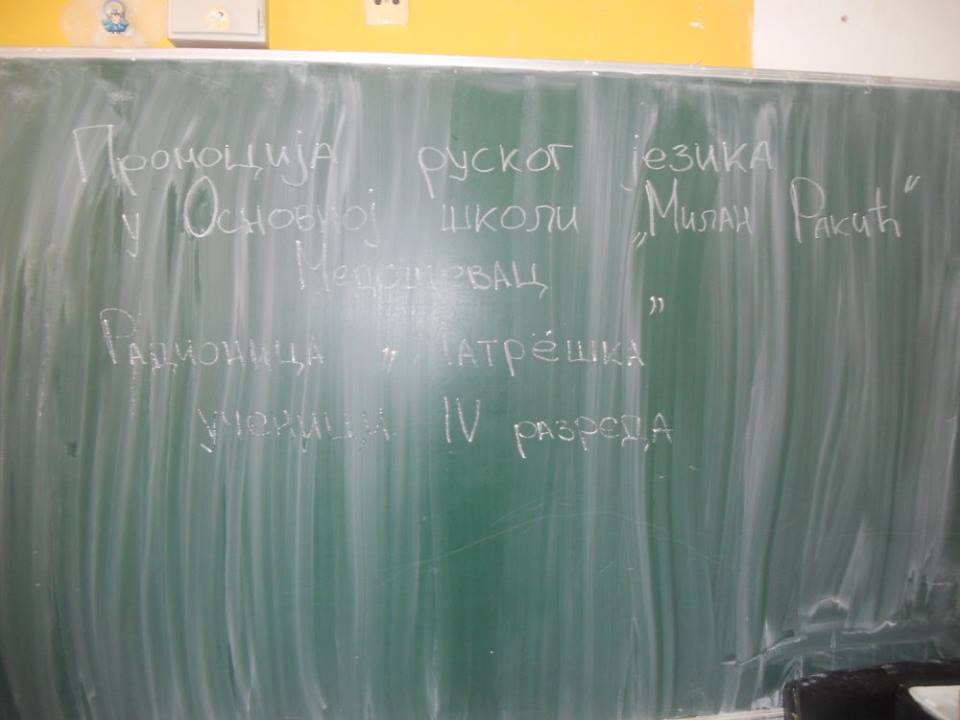 Промоција руског језика
у Основној школи „Милан Ракић“
Медошевац
Радионица „Матрёшка”
ученици IV разреда